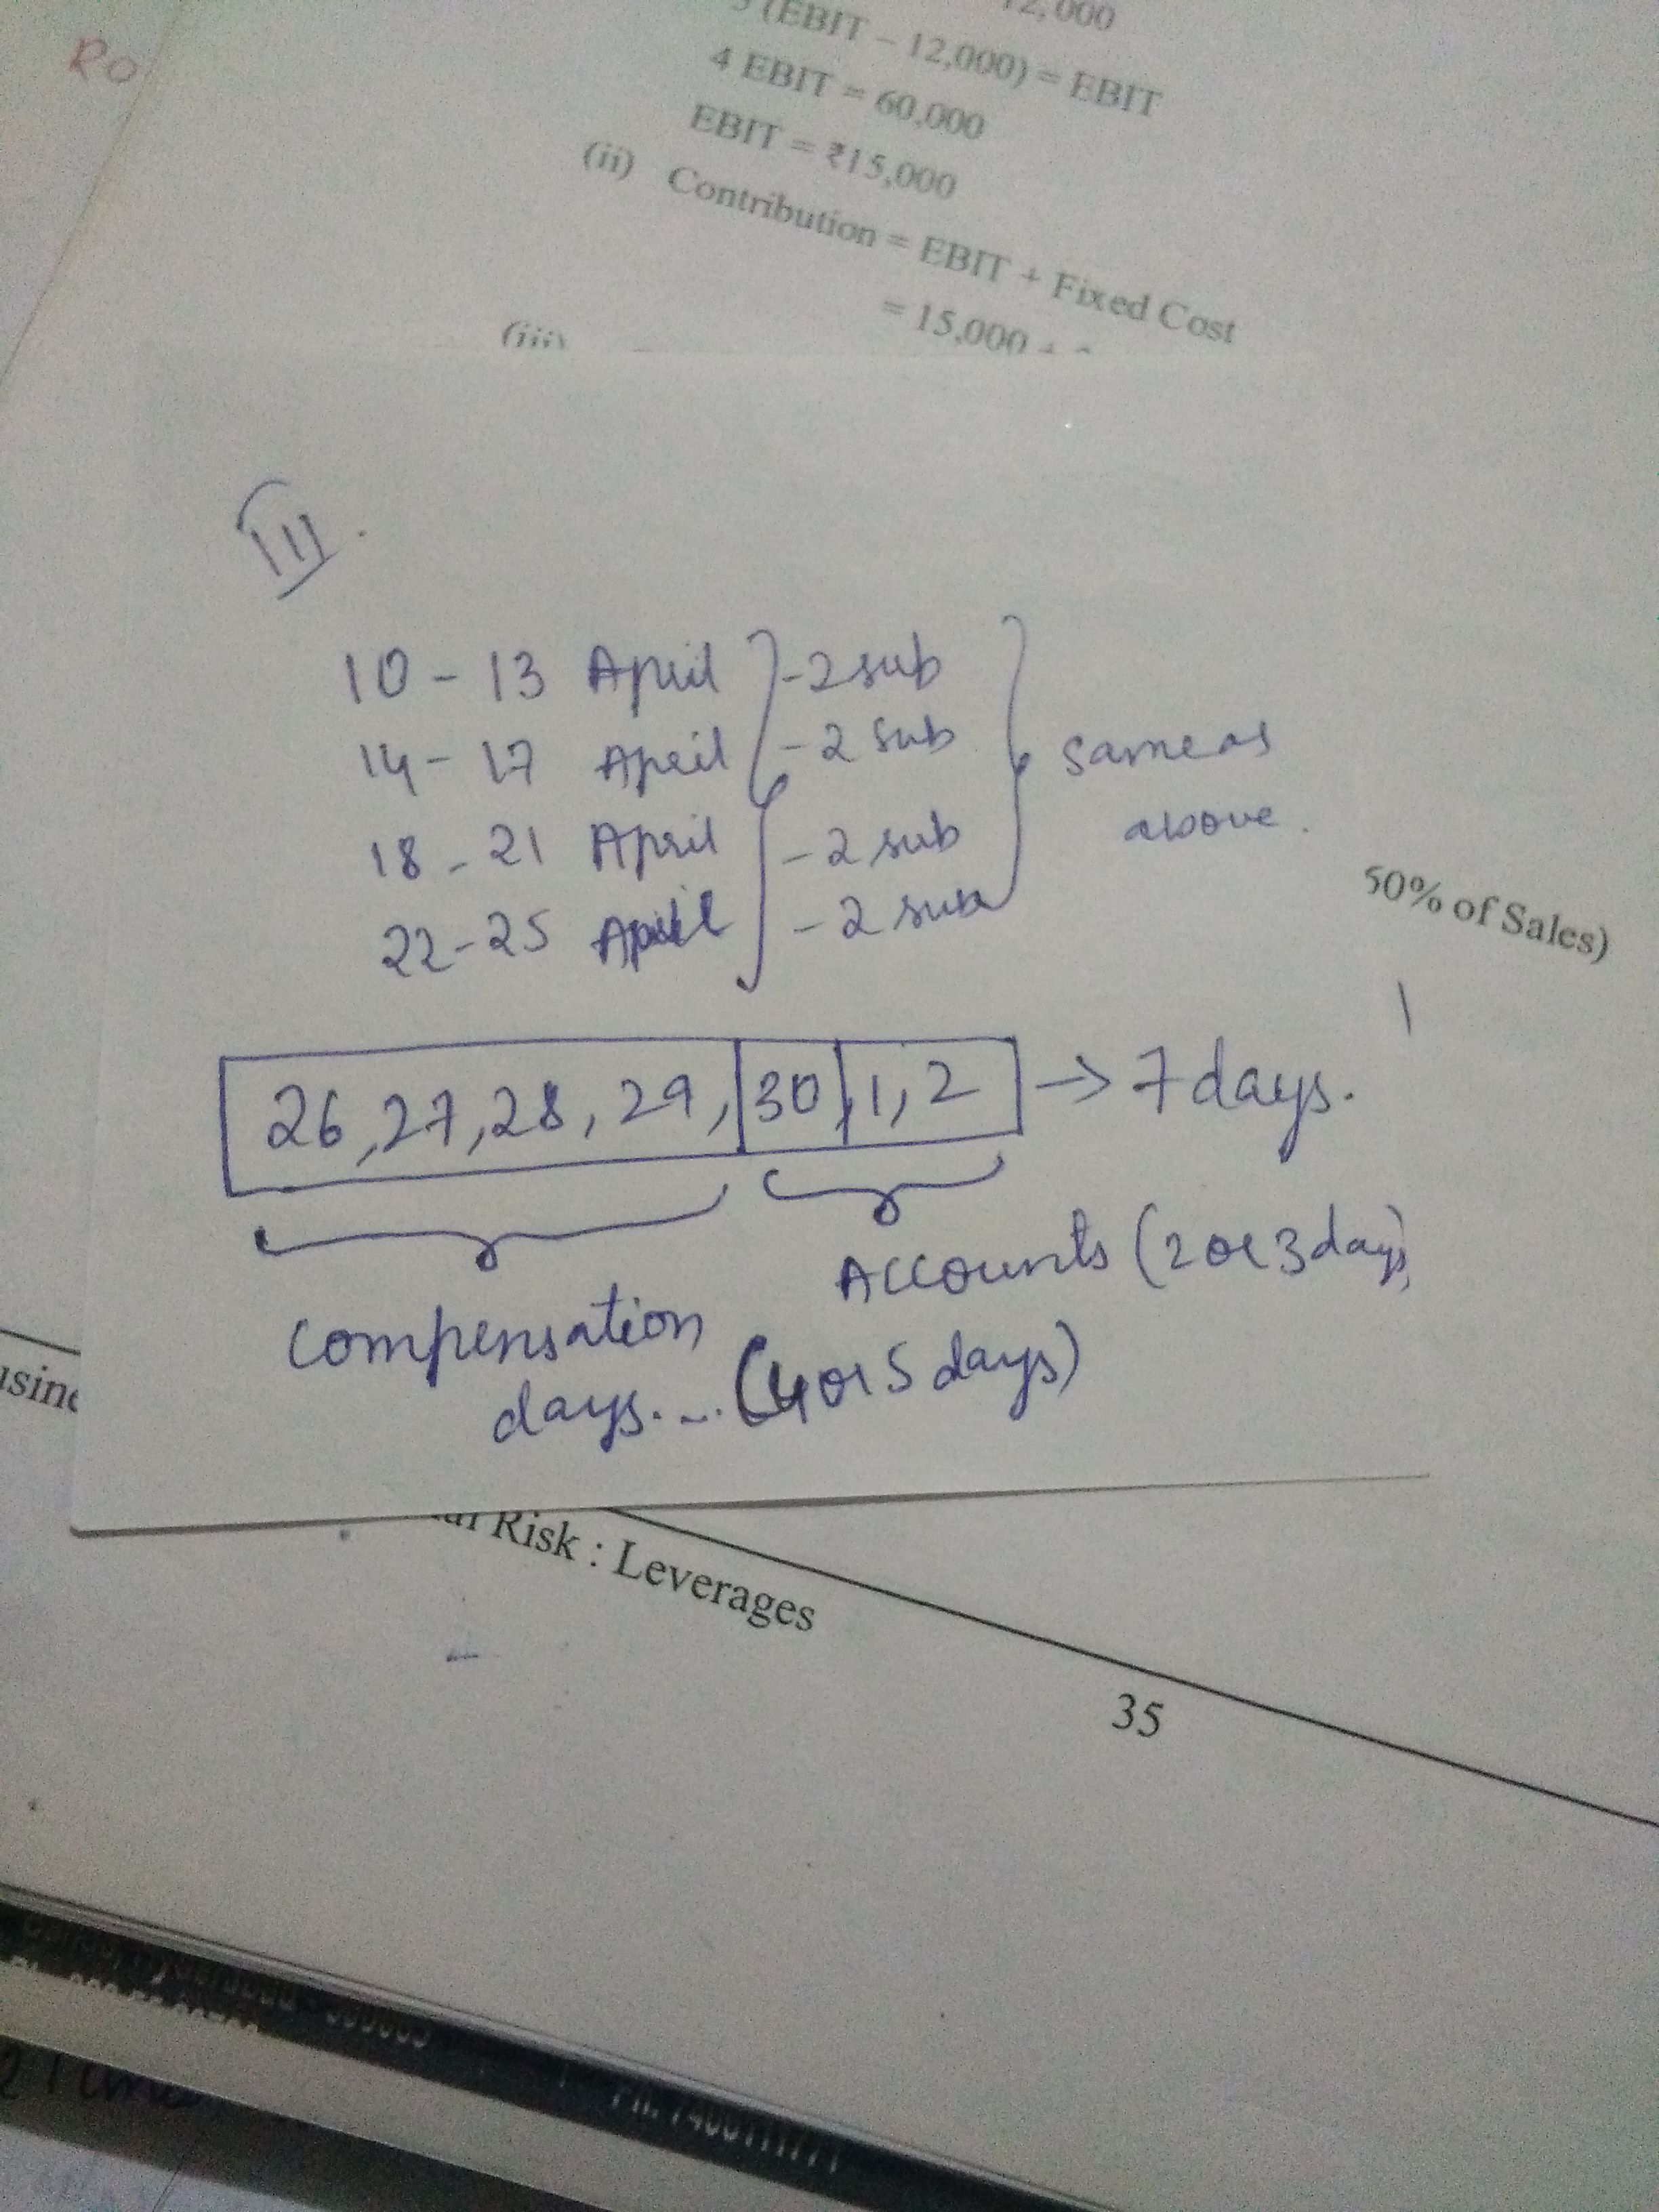 Ro
12,000
(EBIT – 12,000) = EBIT
4 EBIT = 60,000
EBIT = ₹15,000
(ii) Contribution = EBIT + Fixed Cost
= 15,000 +
(iii)
III.
10 - 13 April - 2 sub
14 - 17 April - 2 sub
18 - 21 April - 2 sub
22 - 25 April - 2 sub
same as
above.
50% of Sales)
26, 27, 28, 29, 30, 1, 2 → 7 days.
Accounts (2 or 3 days)
compensation
days... (4 or 5 days)
Risk : Leverages
35